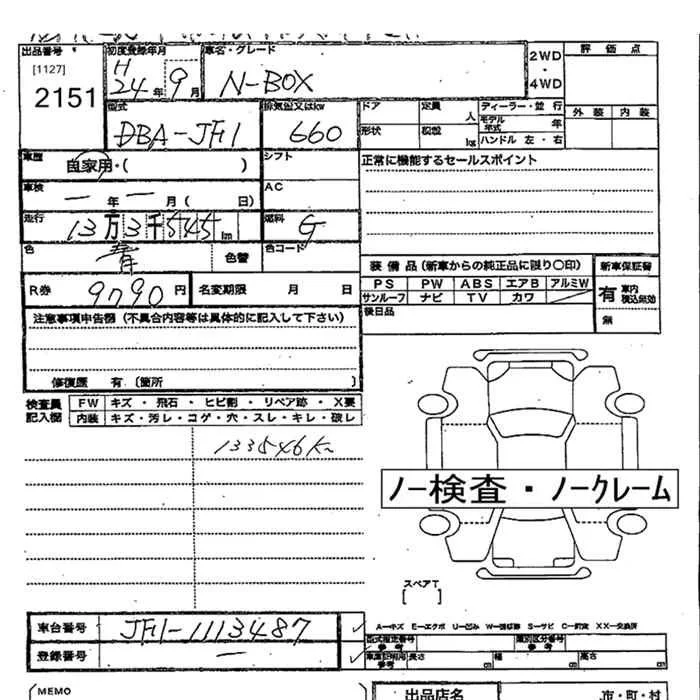 出品番号
[1127]
2151
初度登録年月
H
24年 9月
車名・グレード
N-BOX
2WD
・
4WD
評 価 点
外 装 内 装
型式
DBA-JF1
排気量又はkw
660
ドア
定員 人
ディーラー・並 行
モデル年式 年
形状
積載 kg
ハンドル 左・右
車歴
自家用・( )
シフト
正常に機能するセールスポイント
車検
ー 年 ー 月( 日)
AC
走行
13万3千545km
燃料
G
色
青
色替
色コード
装 備 品 (新車からの純正品に限り〇印)
新車保証書
PS PW ABS エアB アルミW
サンルーフ ナビ TV カワ
有 車内 積込無効
無
R券
9090 円
名変期限 月 日
後日品
注意事項申告欄 (不具合内容等は具体的に記入して下さい)
修復歴 有 〔箇所 〕
検査員
記入欄
FW キズ・飛石・ヒビ割・リペア跡・X要
内装 キズ・汚レ・コゲ・穴・スレ・キレ・破レ
133546Km
ノー検査・ノークレーム
スペアT
[ ]
車台番号
JF1-1113487
A-キズ E-エクボ U-凹み W-波若歪 S-サビ C-腐食 XX-交換済
型式指定番号
参考
類別区分番号
参考
登録番号
ー
車庫証明用
参考
長さ cm
幅 cm
高さ cm
(MEMO
出品店名
市・町・村